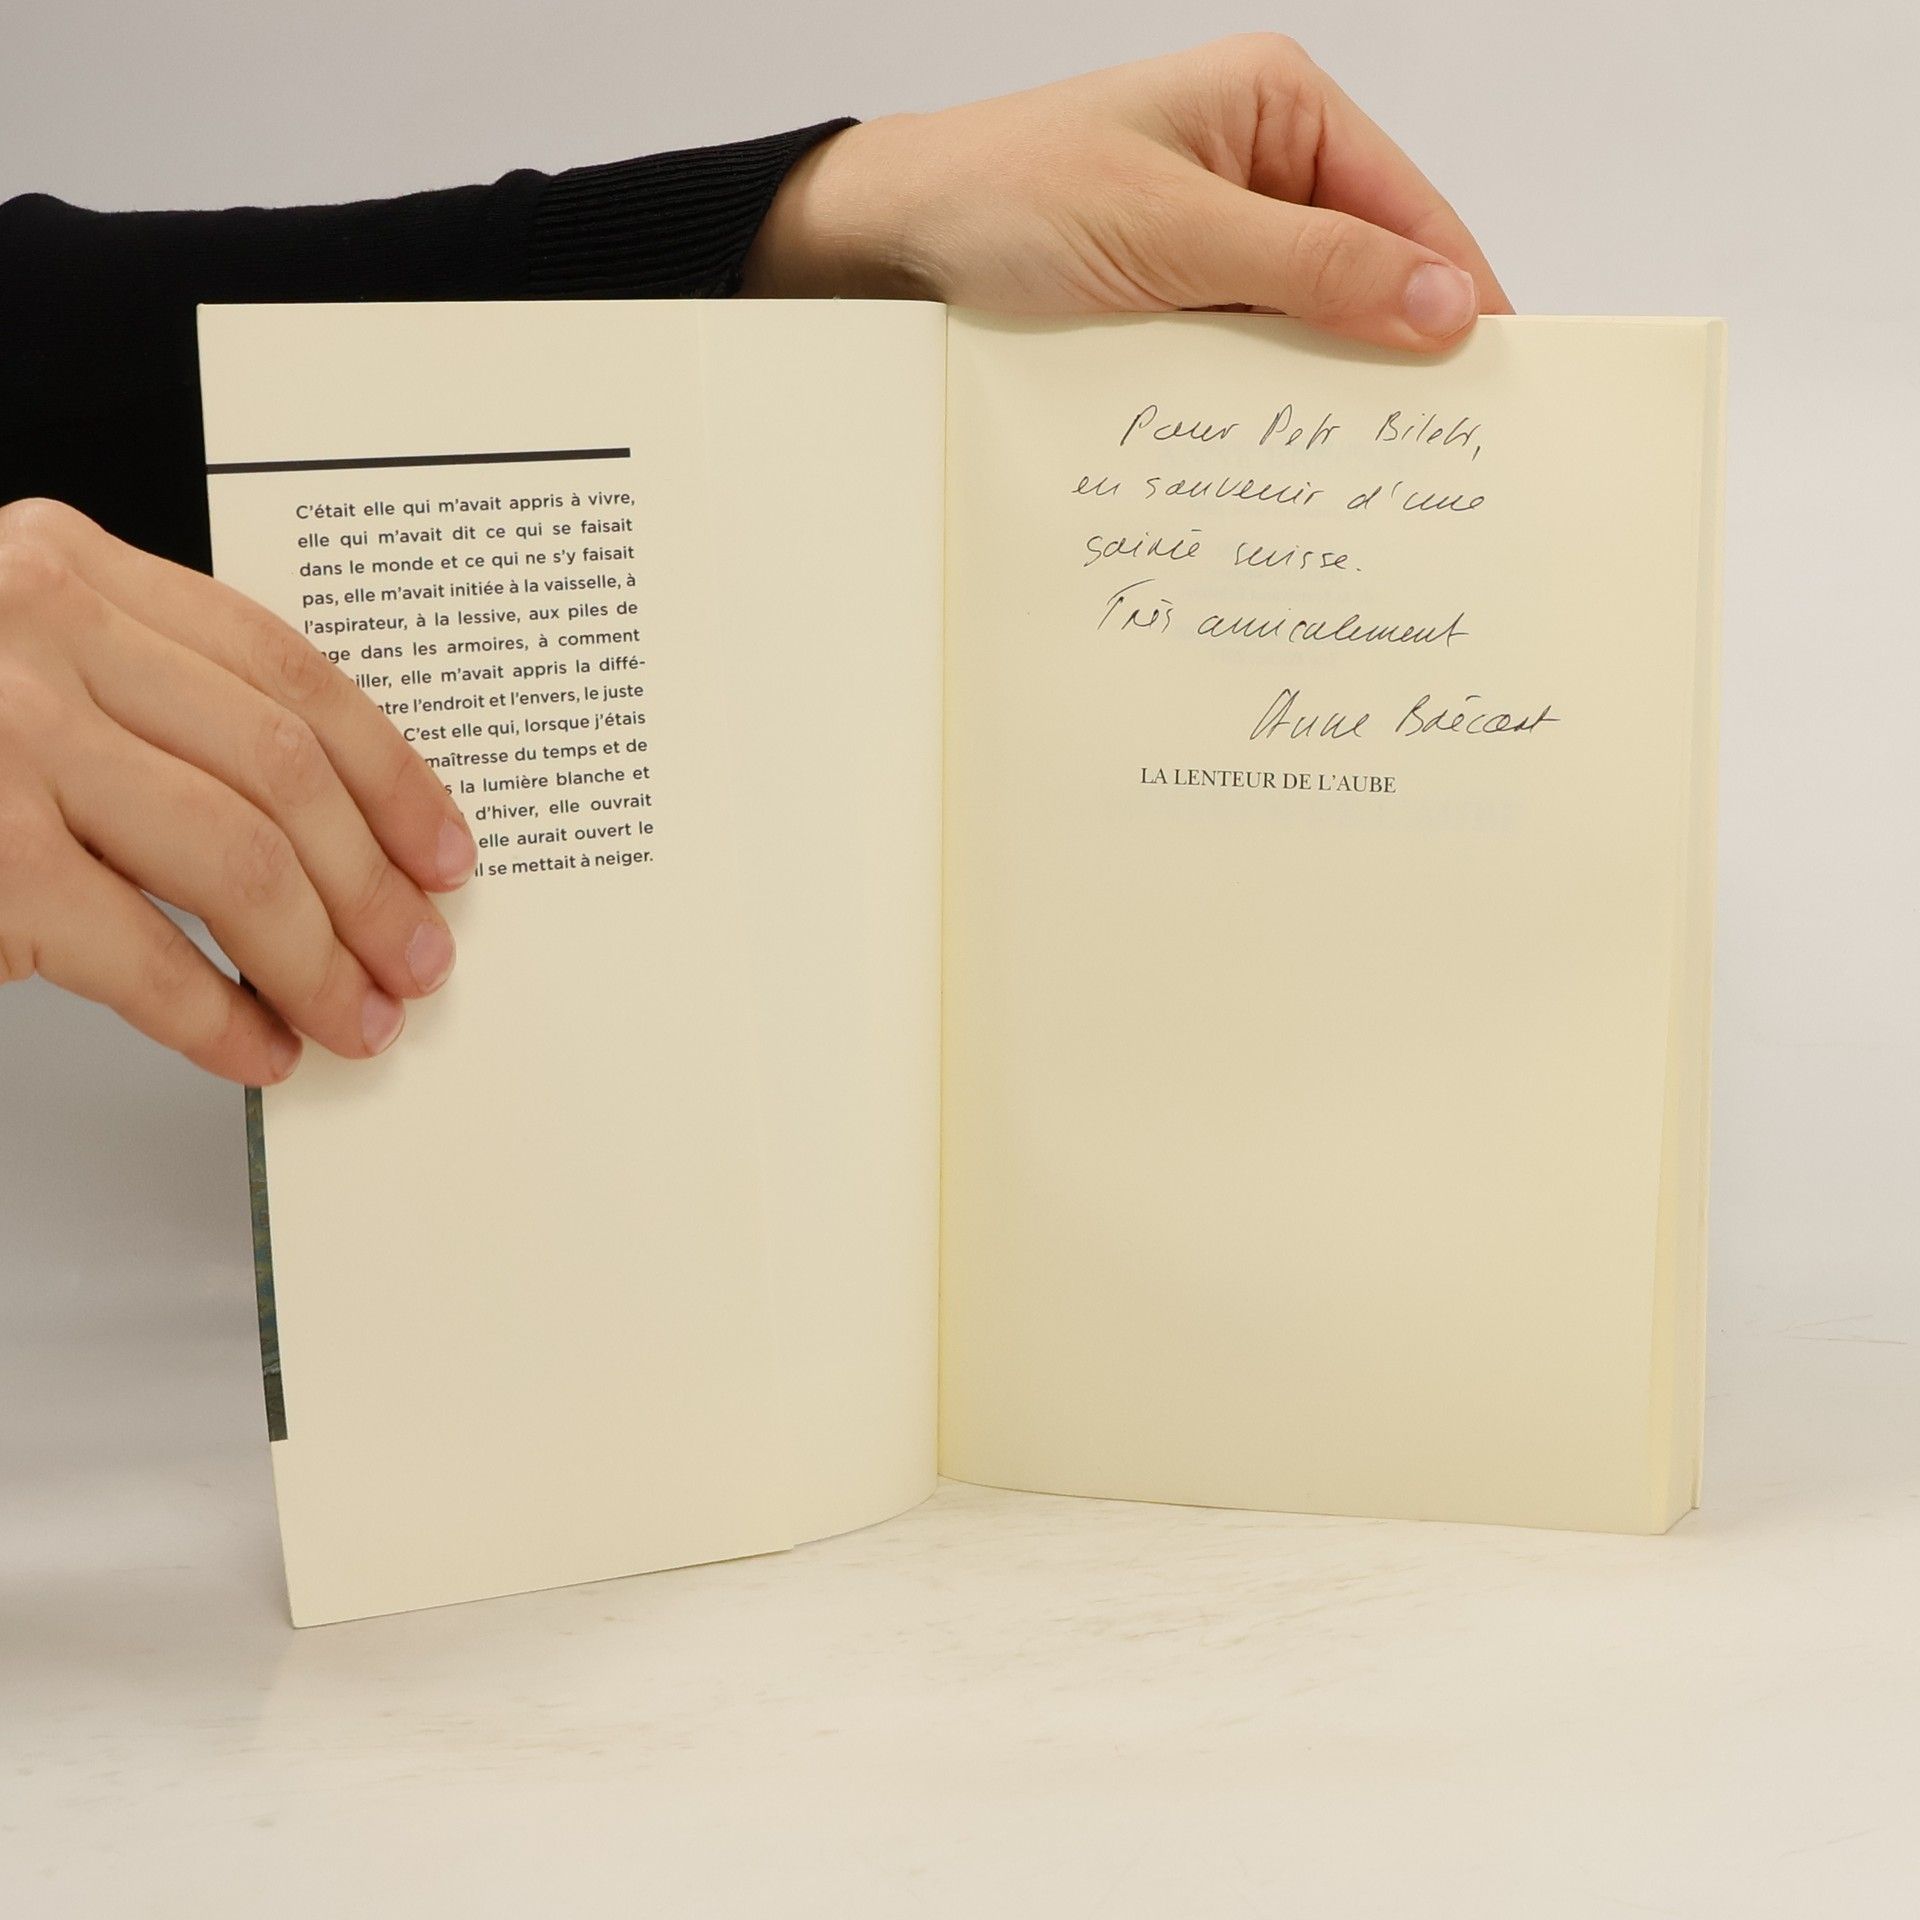 C'était elle qui m'avait appris à vivre,
elle qui m'avait dit ce qui se faisait
dans le monde et ce qui ne s'y faisait
pas, elle m'avait initiée à la vaisselle, à
l'aspirateur, à la lessive, aux piles de
dans les armoires, à comment
elle m'avait appris la diffé-
l'endroit et l'envers, le juste
C'est elle qui, lorsque j'étais
maîtresse du temps et de
la lumière blanche et
d'hiver, elle ouvrait
elle aurait ouvert le
il se mettait à neiger.
Pour Petr
en souvenir d'une
soirée suisse.
Très amicalement
Anne Brécart
LA LENTEUR DE L'AUBE